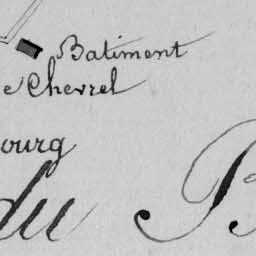 Batiment
e Chevrel
ourg
du B